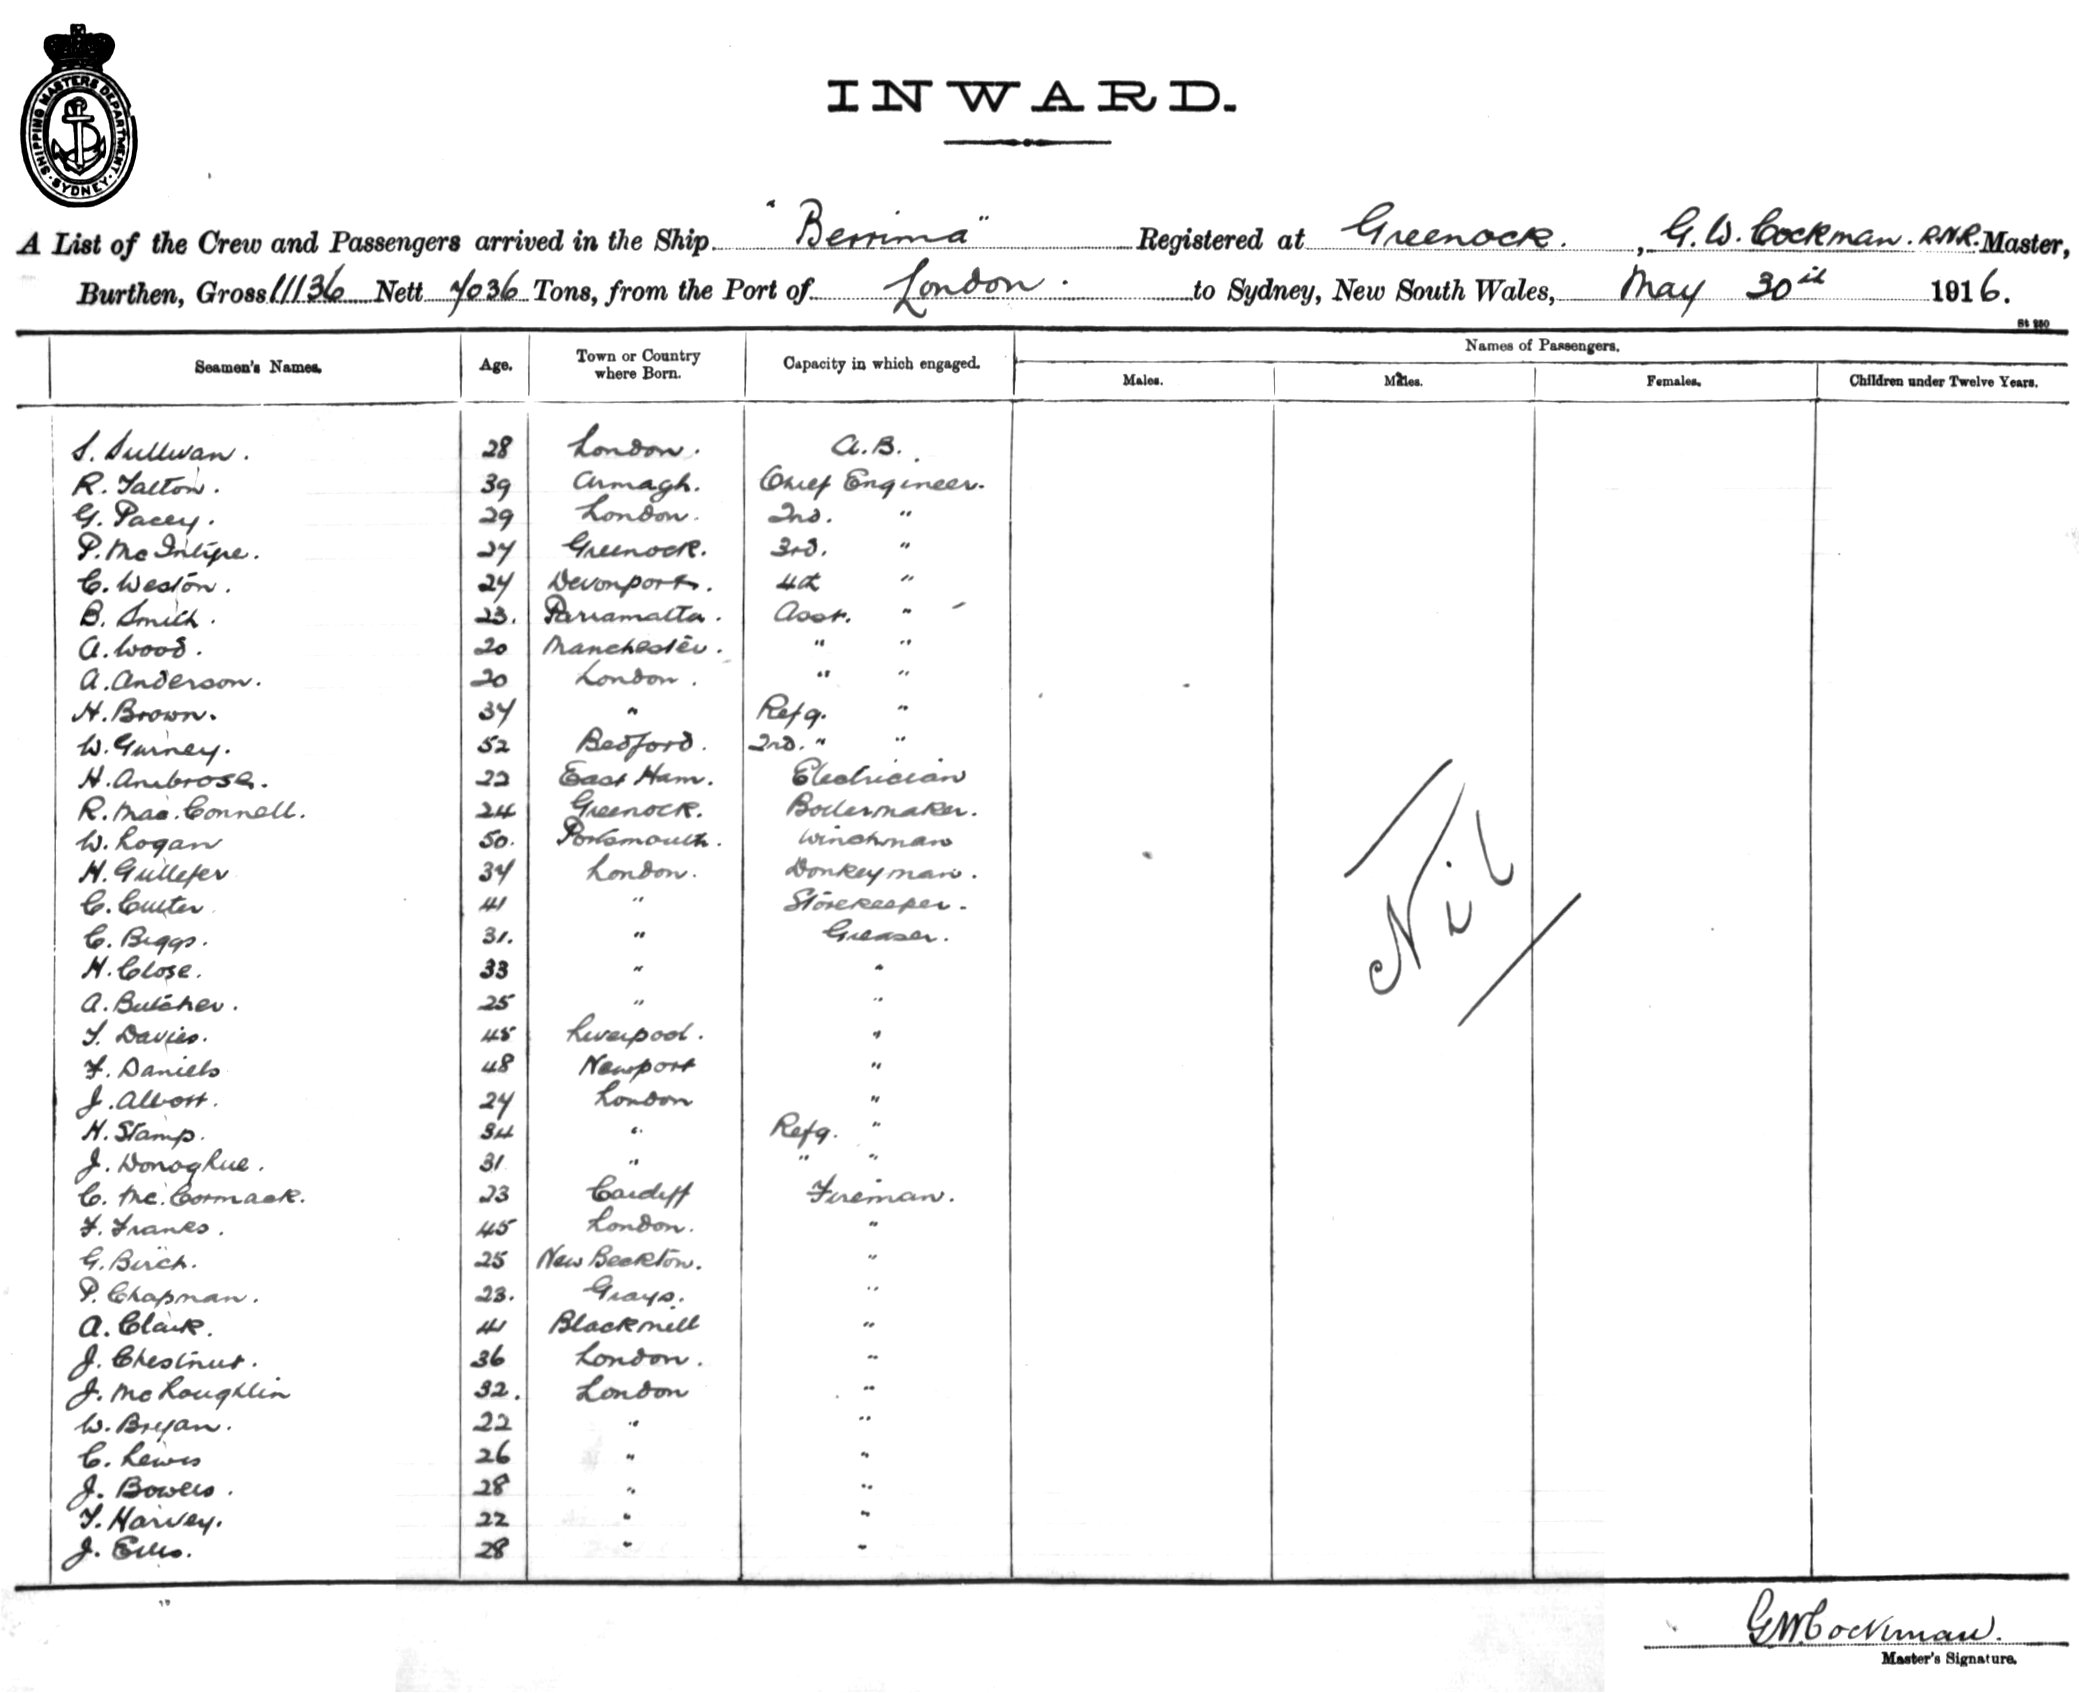 SHIPPING MASTERS DEPARTMENT · SYDNEY ·
INWARD.
A List of the Crew and Passengers arrived in the Ship "Berrima" Registered at Greenock. , G. W. Cockman. R.N.R. Master,
Burthen, Gross 11136 Nett 7036 Tons, from the Port of London. to Sydney, New South Wales, May 30th 1916.
St 250
Seamen's Names. Age. Town or Country where Born. Capacity in which engaged. Names of Passengers.
Males. Males. Females. Children under Twelve Years.
S. Sullivan. 28 London. A.B.
R. Talton. 39 Armagh. Chief Engineer.
G. Pacey. 29 London. 2nd. "
P. McIntyre. 27 Greenock. 3rd. "
C. Weston. 27 Devonport. 4th "
B. Smith. 23. Parramatta. Asst. "
A. Wood. 20 Manchester. " "
A. Anderson. 20 London. " "
H. Brown. 37 " Refg. "
W. Gurney. 52 Bedford. 2nd. " "
H. Ambrose. 22 East Ham. Electrician
R. Mac. Connell. 24 Greenock. Boilermaker.
W. Logan 50. Portsmouth. Winchman
H. Gullefer 37 London. Donkeyman.
C. 41 " Storekeeper.
C. Biggs. 31. " Greaser.
H. Close. 33 " "
A. Butcher. 25 " "
T. Davies. 45 Liverpool. "
F. Daniels 48 Newport "
J. Abbott. 27 London "
H. Stamp. 34 " Refg. "
J. Donoghue. 31 " " "
C. Mc. Cormack. 23 Cardiff Fireman.
F. Franks. 45 London. "
G. Birch. 25 New Beckton. "
P. Chapman. 23. Grays. "
A. Clark. 41 Blackmill "
J. Chestnut. 36 London. "
J. McLoughlin 32. London "
W. Bryan. 22 " "
C. Lewis 26 " "
J. Bowers. 28 " "
T. Harvey. 22 " "
J. Ellis. 28 " "
Nil
G W Cockman.
Master's Signature.